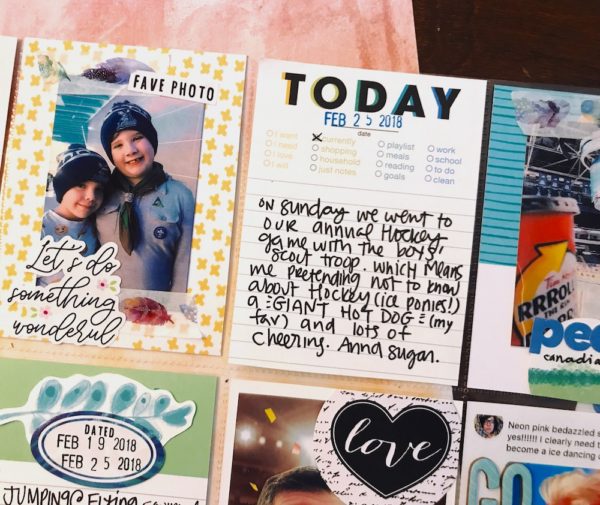 FAVE PHOTO
Let's do
something
wonderful
TODAY
FEB 25 2018
date
I want
currently
playlist
work
I need
shopping
meals
school
I love
household
reading
to do
I will
just notes
goals
clean
on sunday we went to
our annual Hockey
game with the boys'
scout troop. which means
me pretending not to know
about Hockey (ice ponies!)
a GIANT HOT DOG (my
fav) and lots of
cheering. And sugar.
RRROLL
canadia
DATED
FEB 19 2018
FEB 25 2018
JUMPING Flying
love
Neon pink bedazzled s
yes!!!!!! I clearly need t
become a ice dancing
GO